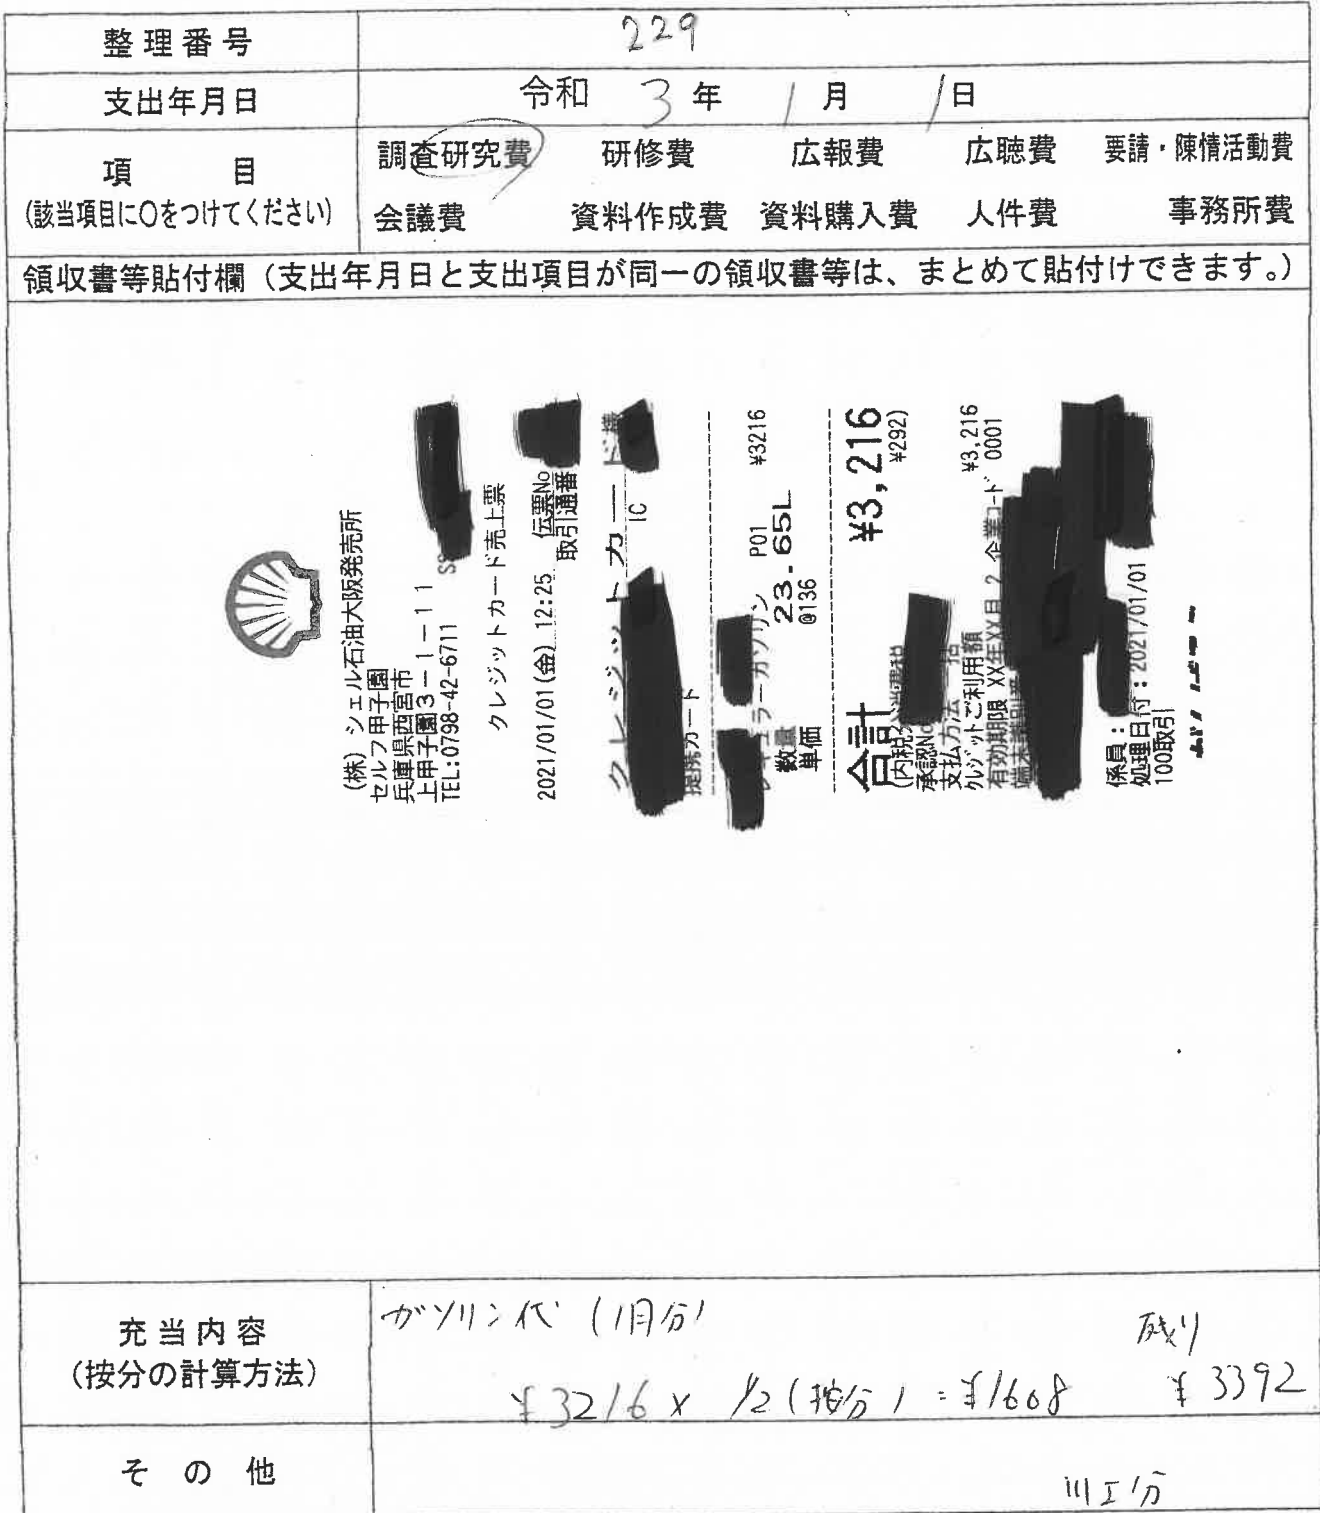 整理番号 229
支出年月日 令和 3 年 1 月 1 日
項 目
(該当項目に〇をつけてください)
調査研究費 研修費 広報費 広聴費 要請・陳情活動費
会議費 資料作成費 資料購入費 人件費 事務所費
領収書等貼付欄(支出年月日と支出項目が同一の領収書等は、まとめて貼付けできます。)
(株)シェル石油大阪発売所
セルフ甲子園
兵庫県西宮市
上甲子園3-1-11
TEL:0798-42-6711
クレジットカード売上票
2021/01/01(金) 12:25 伝票No
取引通番
クレジットカード
IC
提携カード
レギュラーガソリン P01 ¥3216
数量 23.65L
単価 @136
合計 ¥3,216
(内税 ¥292)
承認No
支払方法 一括
クレジットご利用額 ¥3,216
有効期限 XX年XX月 2 企業コード 0001
係員:
処理日付:2021/01/01
100取引
充当内容
(按分の計算方法)
ガソリン代 (1月分)
残り
¥3216 x 1/2 (按分) = ¥1608 ¥3392
その他
川江分